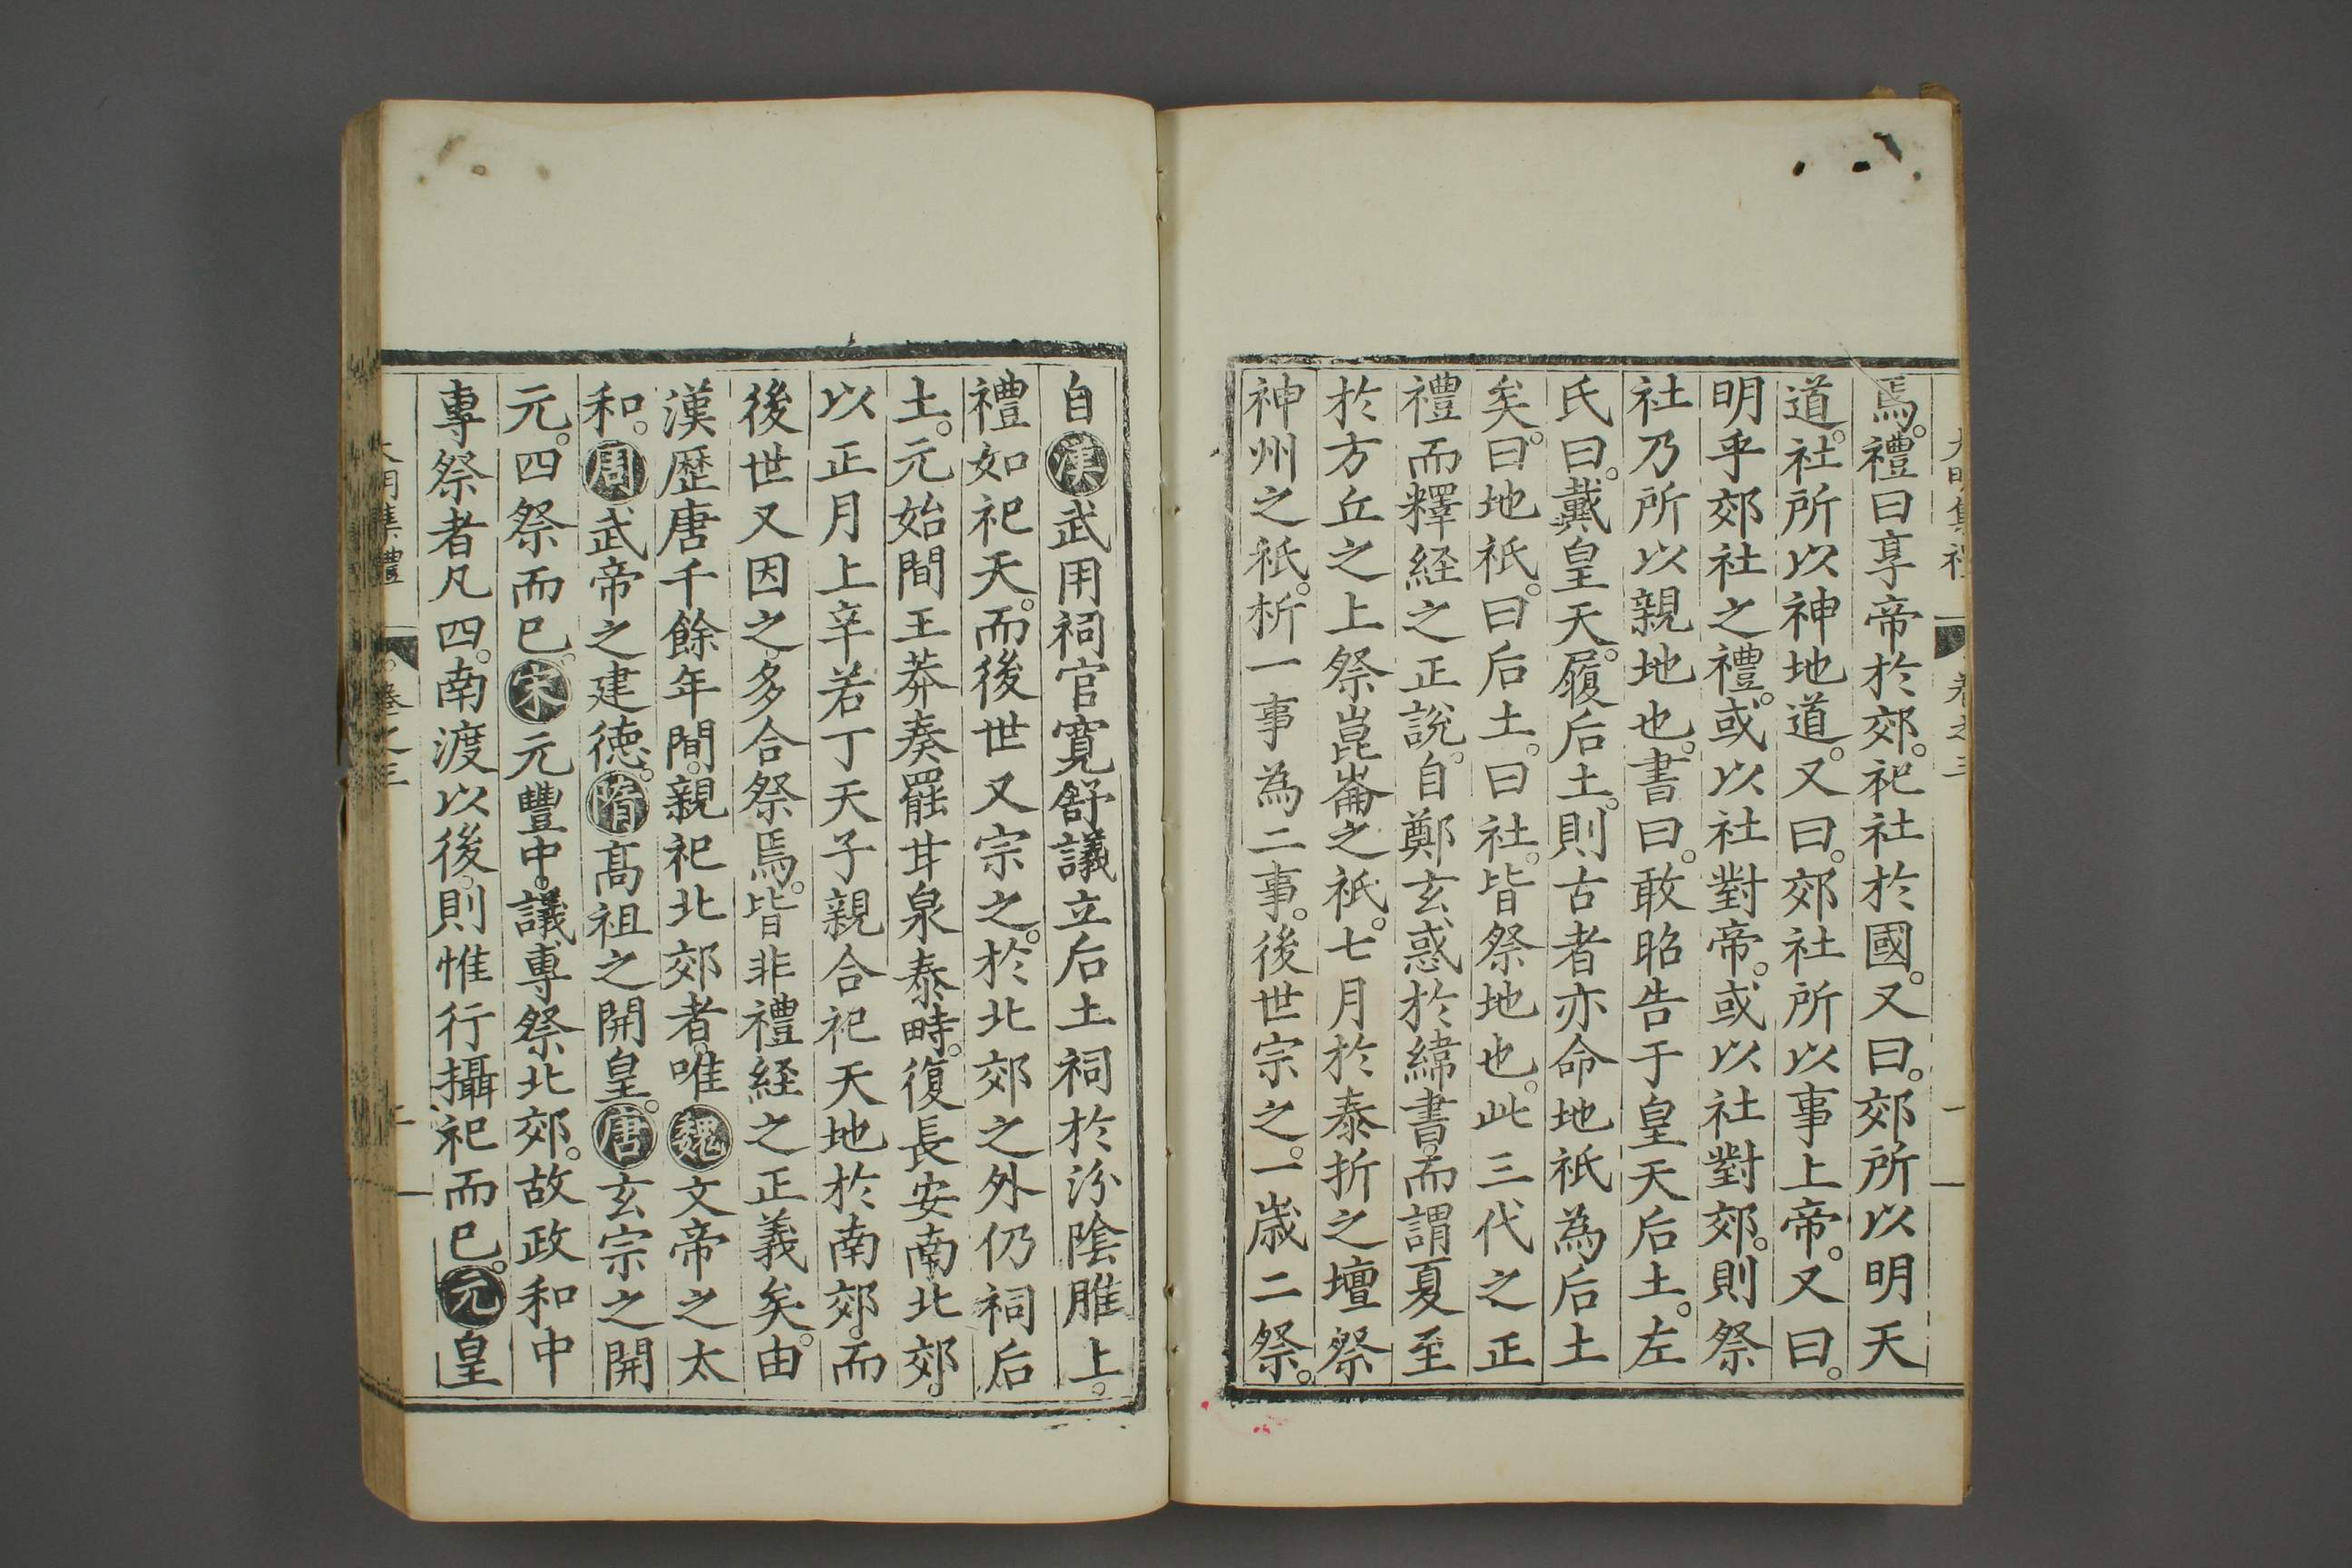 焉。禮曰享帝於郊。祀社於國。又曰。郊所以明天
道。社所以神地道。又曰。郊社所以事上帝。又曰。
明乎郊社之禮。或以社對帝。或以社對郊。則祭
社乃所以親地也。書曰。敢昭告于皇天后土。左
氏曰。戴皇天。履后土。則古者亦命地祇為后土
矣。曰地祇。曰后土。曰社。皆祭地也。此三代之正
禮而釋経之正說。自鄭玄惑於緯書。而謂夏至
於方丘之上祭崑崙之祇。七月於泰折之壇祭
神州之祇。析一事為二事。後世宗之。一歳二祭。
自漢武用祠官寛舒議立后土祠於汾陰脽上。
禮如祀天。而後世又宗之。於北郊之外仍祠后
土。元始間王莽奏罷甘泉泰畤。復長安南北郊。
以正月上辛若丁天子親合祀天地於南郊。而
後世又因之。多合祭焉。皆非禮経之正義矣。由
漢歷唐千餘年間。親祀北郊者。唯魏文帝之太
和。周武帝之建德。隋髙祖之開皇。唐玄宗之開
元。四祭而已。宋元豐中。議專祭北郊。故政和中
專祭者凡四。南渡以後。則惟行攝祀而已。元皇
大明集禮 卷之三